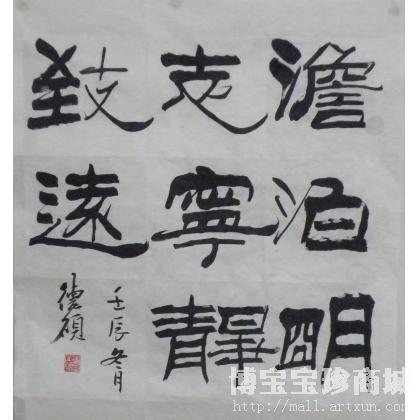 澹泊明
志寧靜
致遠
壬辰冬月
德碩
博宝宝珍商城
http://mall.artxun.com